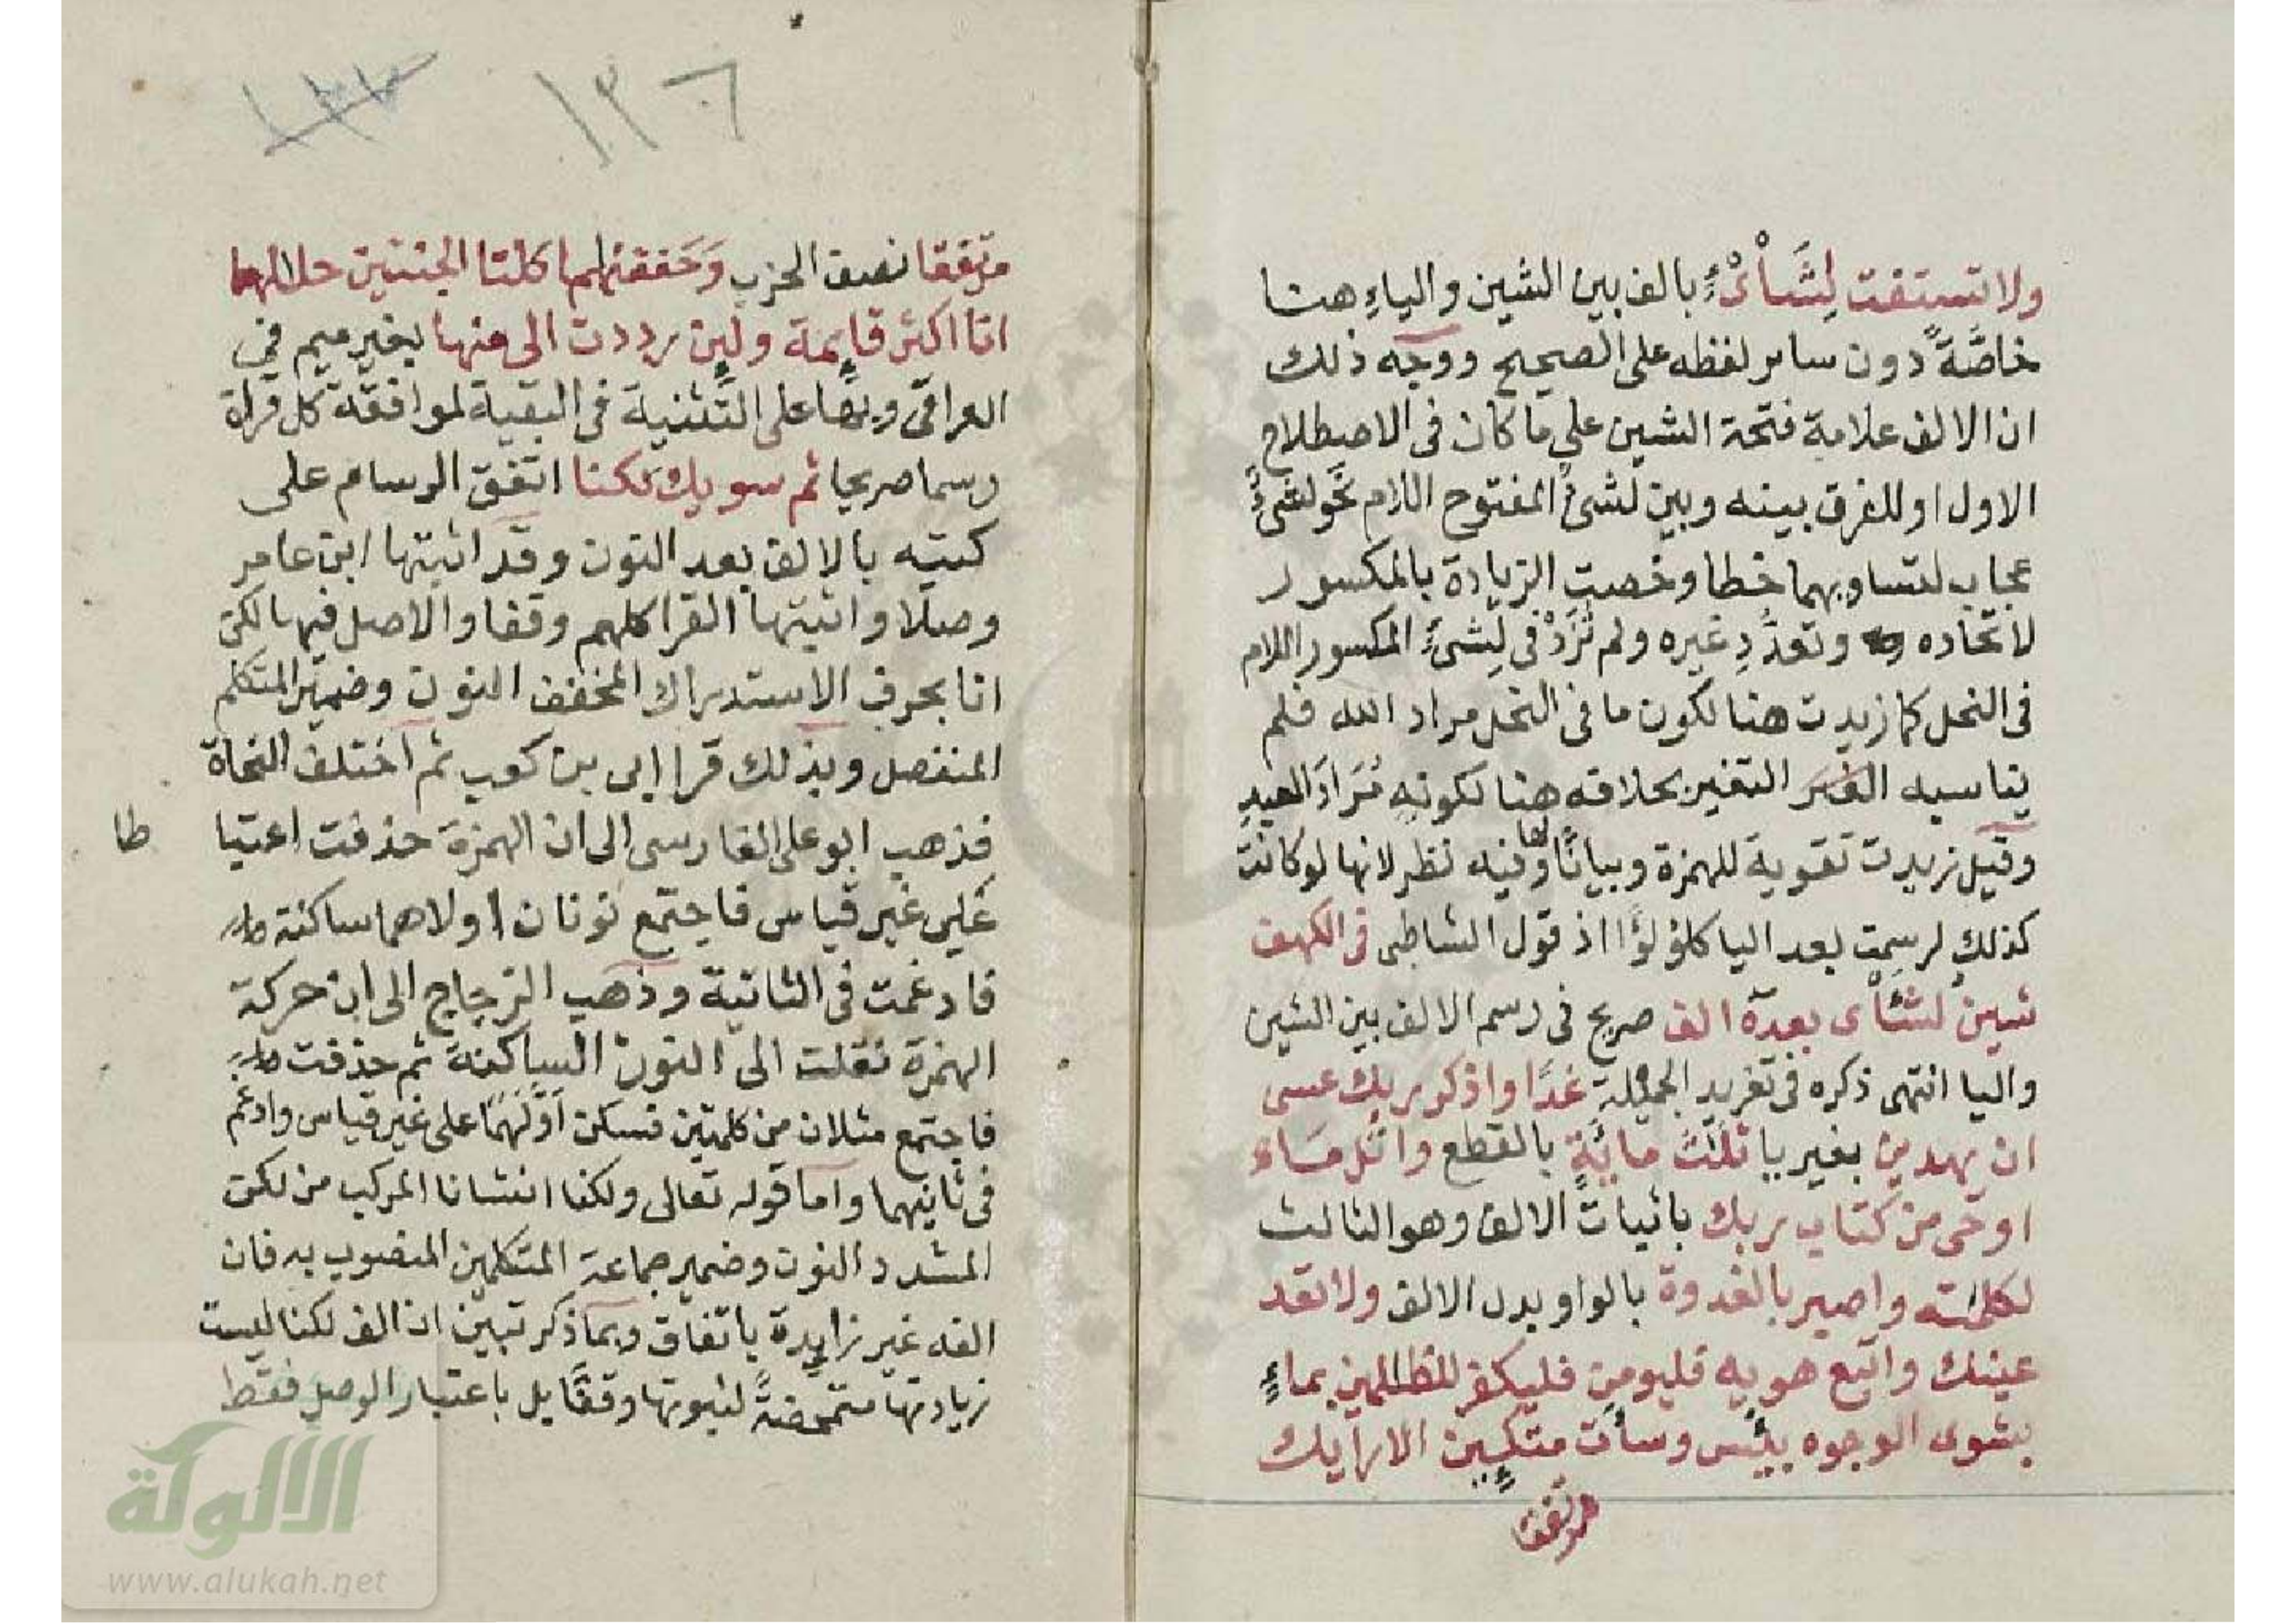 ولا تستفت لِشَأْىْءٍ بالف بين الشين والياءِ هنا
خاصَّةً دون ساير لفظه على الصحيح ووجه ذلك
ان الالف علامة فتحة الشين على ما كان فى الاصطلاح
الاول او للفرق بينه وبين لشىءٌ المفتوح اللام نحو لشىءٌ
عجاب لتساويهما خطا وخصت الزيادة بالمكسور
لاتحاده وتعدُّدِ غيره ولم تُزَدْ فى لِشىءٍ المكسور اللام
فى النحل كما زيدت هنا لكون ما فى النحل مراد الله فلم
يناسبه التغير بخلافه هنا لكونه مُرَادَ العبدِ
وقيل زيدت تقوية للهمزة وبيانًا لها وفيه نظر لانها لو كانت
كذلك لرسمت بعد اليا كلؤلؤًا اذ قول الشاطبى فى الكهف
شينُ لشَأْى بعده الف صريح فى رسم الالف بين الشين
واليا انتهى ذكره فى تفريد الجميلة غدًا واذكر ربك عسى
ان يهدين بغير يا ثَلٰثَ مِائَةٍ بالقطع واتل مَاء
اوحى من كتاب ربك باثبات الالف وهو الثالث
لكلمٰته واصبر بالغدوة بالواو بدل الالف ولا تعد
عينٰك واتبع هويه فليومن فليكفر للظٰلمين بماءٍ
يشوى الوجوه بئس وساءت متكين الارايك
مرتفق
١٣٦
١٣٧
مرتفقا نصف الحزب وَحَففنٰهما كلتا الجنتين خلالهما
انا اكثر قايمة ولين رددت الى منها بغير ميم فى
العراقى وبها على التَّثنية فى البقية لموافقة كل قراة
رسما صريحا ثم سويك لكنا اتفق الرسام على
كتبه بالالف بعد النون وقد اثبتها ابن عامر
وصلًا واثبتها القرا كلهم وقفا والاصل فيها لكن
انا بحرف الاستدراك المخفف النون وضمير المتكلم
المنفصل وبذلك قرا ابى بن كعب ثم اختلف النحاة
فذهب ابو على الفارسى الى ان الهمزةَ حذفت اعتبا
طا
على غير قياس فاجتمع نونان اولاهما ساكنة
فادغمت فى الثانية وذهب الزجاج الى ان حركة
الهمزة نقلت الى النون الساكنة ثم حذفت
فاجتمع مثلان من كلمتين فسكن اَوَّلَهُمَا على غير قياس وادغم
فى ثانيهما واما قوله تعالى ولكنا انشانا المركب من لكن
المشدد النون وضمير جماعة المتكلمين المنصوب به فان
الفه غير زايدة باتفاق وبما ذكر تبين ان الف لكنا ليست
زيادتها متمحضةً لثبوتها وقفًا بل باعتبار الوصل فقط
الألوكة
www.alukah.net